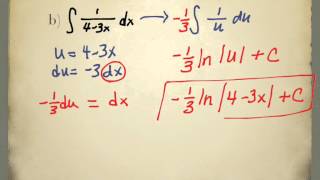 b) ∫ 1/(4-3x) dx → -1/3 ∫ 1/u du
u = 4-3x
du = -3 dx
-1/3 du = dx
-1/3 ln |u| + C
-1/3 ln |4-3x| + C